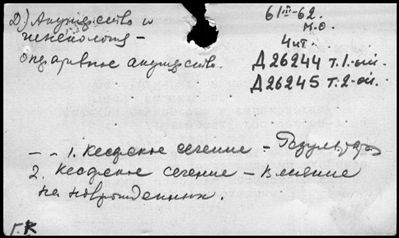 61 III-62.
Д) Акушерство и
М.О.
гинекология -
4 чит.
Оперативное акушерство.
Д 26244 т. 1-ый.
Д 26245 т. 2-ой.
- „ 1. Кесарское сечение - Результаты
2. Кесарское сечение - Влияние
на новорожденных.
Г.К